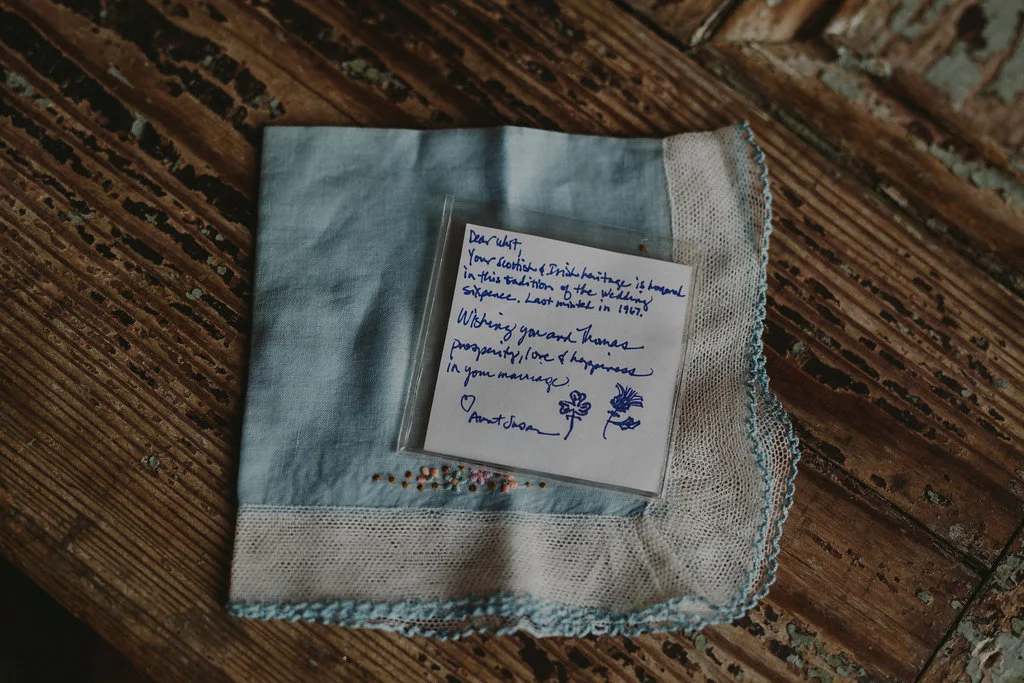 Dear Whit,
Your Scottish & Irish heritage is honored
in this tradition of the wedding
sixpence. Last minted in 1967.
Wishing you and Thomas
prosperity, love & happiness
in your marriage
♡ Aunt Susan